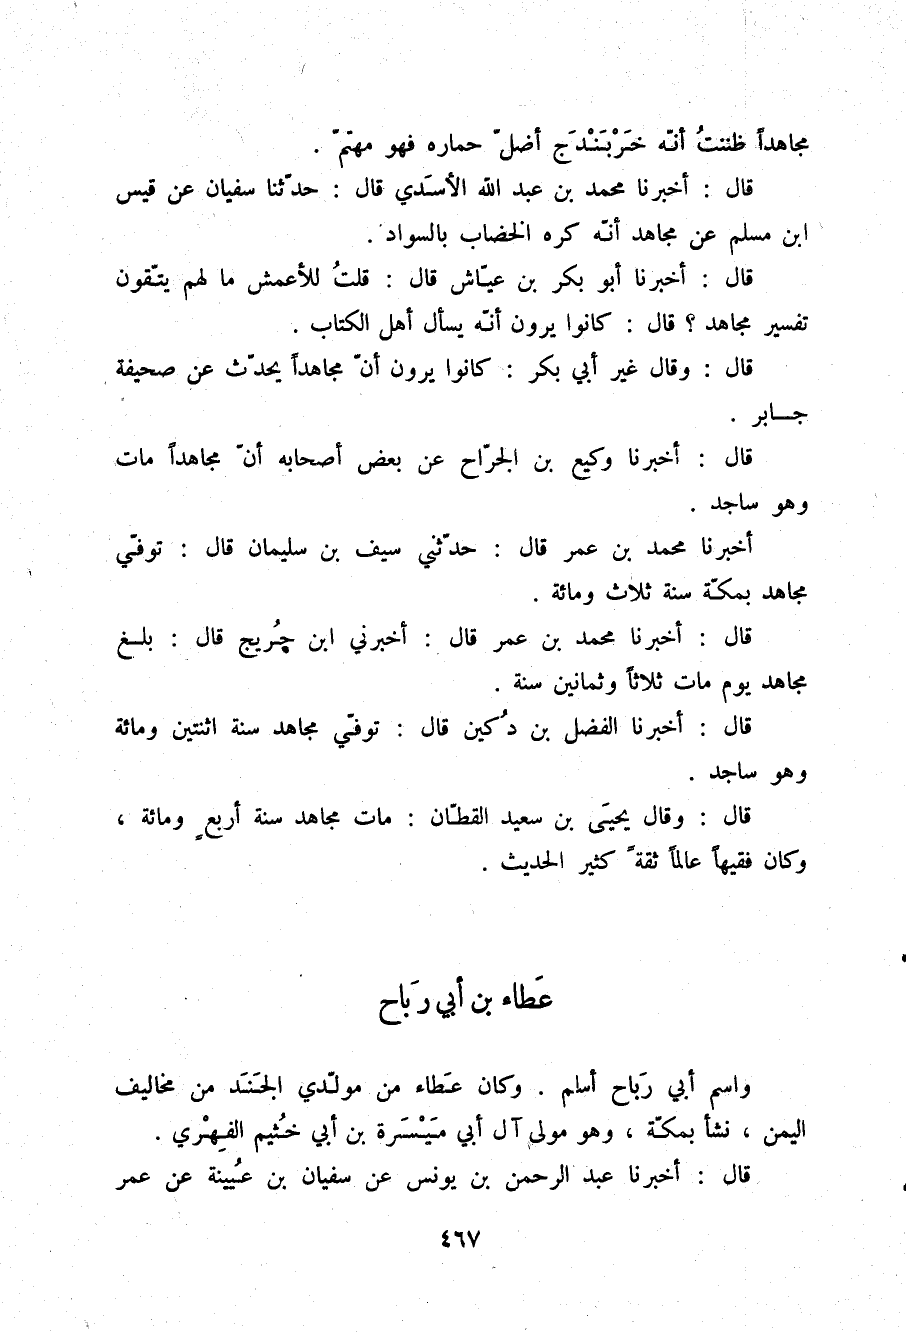 مجاهداً ظننتُ أنّه خَرْبَنْدَج أضلّ حماره فهو مهتمّ .
قال : أخبرنا محمد بن عبد الله الأسَدي قال : حدّثنا سفيان عن قيس
ابن مسلم عن مجاهد أنّه كره الخضاب بالسواد .
قال : أخبرنا أبو بكر بن عيّاش قال : قلتُ للأعمش ما لهم يتّقون
تفسير مجاهد ؟ قال : كانوا يرون أنّه يسأل أهل الكتاب .
قال : وقال غير أبي بكر : كانوا يرون أنّ مجاهداً يحدّث عن صحيفة
جـــابر .
قال : أخبرنا وكيع بن الجرّاح عن بعض أصحابه أنّ مجاهداً مات
وهو ساجد .
أخبرنا محمد بن عمر قال : حدّثني سيف بن سليمان قال : توفّي
مجاهد بمكّة سنة ثلاث ومائة .
قال : أخبرنا محمد بن عمر قال : أخبرني ابن جُريج قال : بلـغ
مجاهد يوم مات ثلاثاً وثمانين سنة .
قال : أخبرنا الفضل بن دُكين قال : توفّي مجاهد سنة اثنتين ومائة
وهو ساجد .
قال : وقال يحيَى بن سعيد القطّان : مات مجاهد سنة أربعٍ ومائة ،
وكان فقيهاً عالماً ثقةً كثير الحديث .
عَطاء بن أبي رَباح
واسم أبي رَباح أسلم . وكان عَطاء من مولّدي الجَنَد من مخاليف
اليمن ، نشأ بمكّة ، وهو مولى آل أبي مَيْسَرة بن أبي خُثيم الفِهْري .
قال : أخبرنا عبد الرحمن بن يونس عن سفيان بن عُيينة عن عمر
٤٦٧